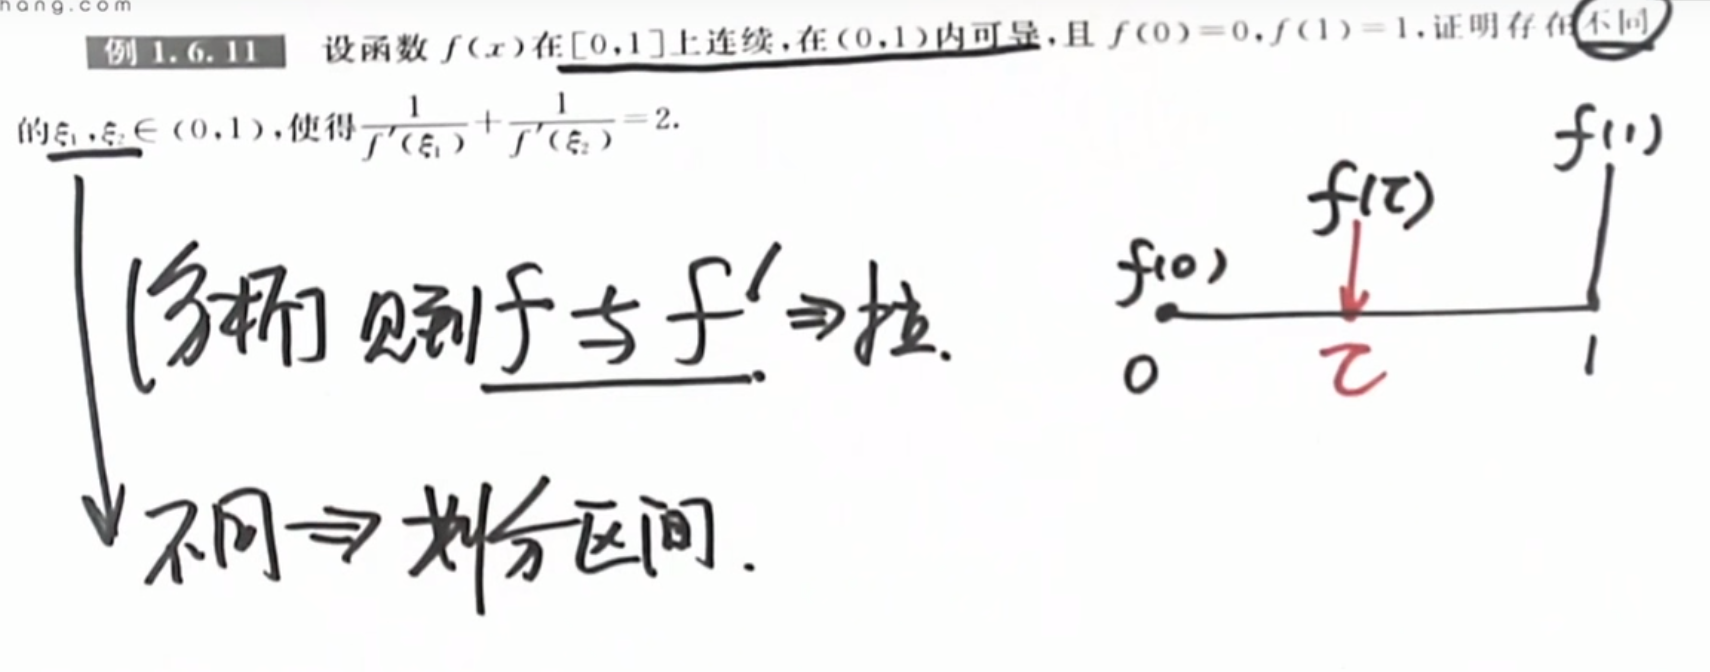 hang.com
例 1.6.11 设函数 f(x)在[0,1]上连续,在(0,1)内可导,且 f(0)=0,f(1)=1,证明存在不同
的ξ₁,ξ₂∈(0,1),使得 1/f′(ξ₁) + 1/f′(ξ₂) = 2.
f(1)
f(τ)
f(0)
[分析] 见到 f 与 f′ ⇒ 拉.
0 τ 1
不同 ⇒ 划分区间.